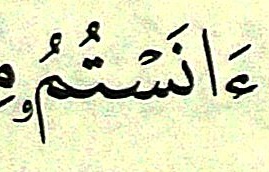 ءَانَسْتُمُۥ